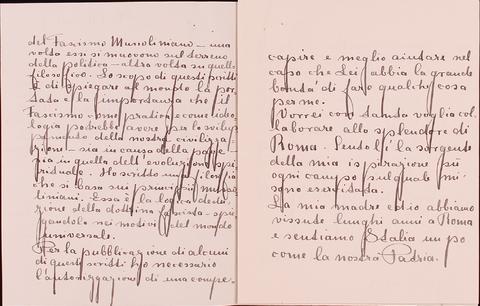 del Fascismo Mussoliniano – una
volta essi si muovono sul terreno
della politica – altra volta su quello
filosofico. Lo scopo di questi scritti
è di spiegare al mondo la por-
tata e la importanza che il
Fascismo come pratica e come ideo-
logia potrebbe avere per lo svilup-
pamento della nostra civilizza-
zione – sia in causa della pace –
sia in quella dell'evoluzione spi-
rituale. Ho scritto una filosofia
che si basa su principii musso-
liniani. Essa è la logica dedu-
zione della dottrina fascista – spie-
gandola nei motivi del mondo
universale.
Per la pubblicazione di alcuni
di questi scritti ho necessario
l'autorizzazione di una compe-
capire e meglio aiutare nel
caso che Lei abbia la grande
bontà di fare qualche cosa
per me.
Vorrei con tanta voglia col-
laborare allo splendore di
Roma. Sento lì la sorgente
della mia ispirazione in
ogni campo sul quale mi
sono esercitata.
La mia madre ed io abbiamo
vissuto lunghi anni a Roma
e sentiamo l'Italia un po
come la nostra Patria.